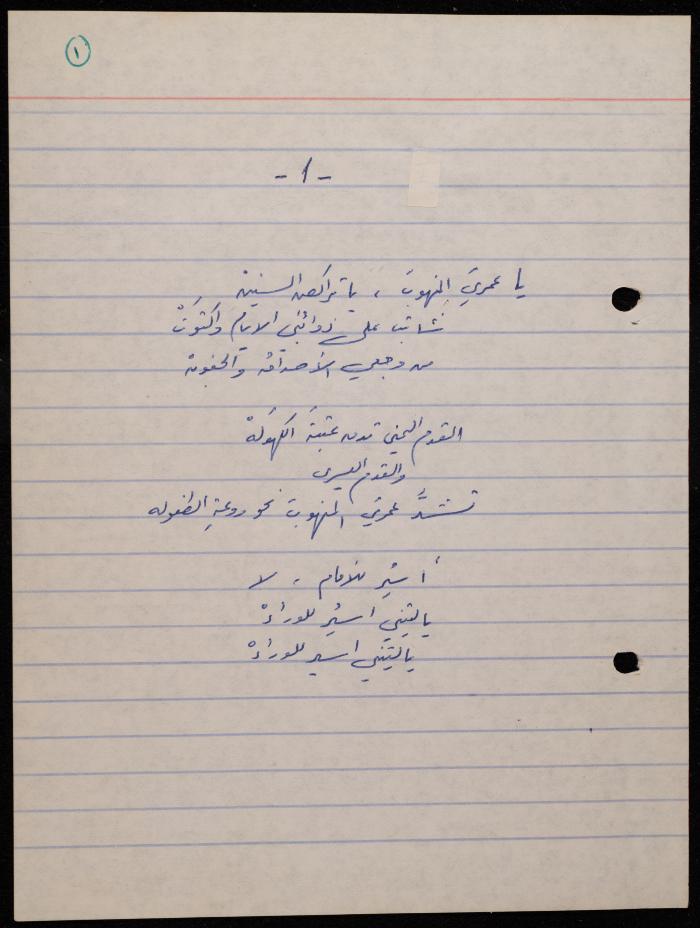 ١
- ١ -
يا عمريَ المنهوبَ ، يا تراكضَ السنينْ
شابت على ذوائبي الايام واكتوَتْ
من وجعي الأحداقُ والجفونْ
القدم اليمنى تدق عتبةَ الكهُولَهْ
والقدم اليسرى
تشدُّ عمريَ المنهوبَ نحو روعةِ الطفوله
أ أسيُر للامام ، لا
ياليتني اسيُر للوراءْ
ياليتَني اسير للوراءْ